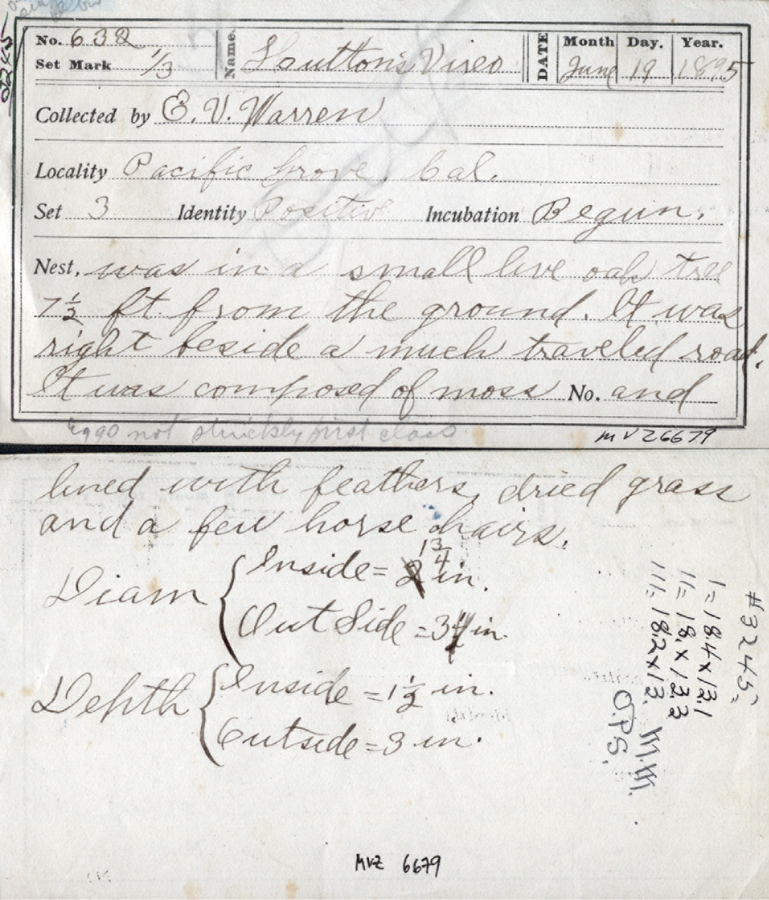 No. 632
Set Mark 1/3
Name. Hutton's Vireo
DATE Month June Day. 19 Year. 1895
Collected by E. V. Warren
Locality Pacific Grove, Cal.
Set 3 Identity Positive Incubation Begun.
Nest. was in a small live oak tree
7 1/2 ft. from the ground. It was
right beside a much traveled road.
It was composed of moss No. and
Eggs not strickly first class
MVZ 6679
lined with feathers, dried grass
and a few horse hairs.
Diam { Inside = 1 3/4 in.
Out Side = 3 in.
Depth { Inside = 1 1/2 in.
Outside = 3 in.
#3245
1 = 18.4 x 13.1
11 = 18. x 13.2
111 = 18.2 x 13. M.M.
O.P.S.
MVZ 6679